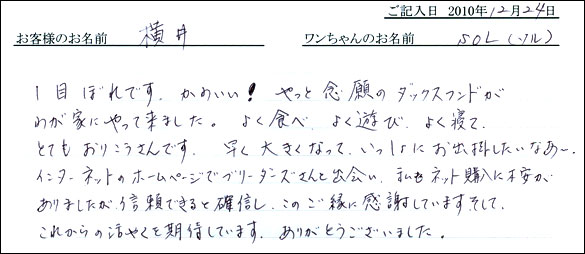 ご記入日 2010年12月24日
お客様のお名前 横井 ワンちゃんのお名前 SOL(ソル)
1目ぼれです. かわいい! やっと念願のダックスフンドが
わが家にやって来ました。 よく食べ、よく遊び、よく寝て、
とてもおりこうさんです. 早く大きくなって、いっしょにお出掛したいなあ〜.
インターネットのホームページでブリーダーズさんと出会い、私もネット購入に不安が
ありましたが、信頼できると確信し、このご縁に感謝しています。そして、
これからの活やくを期待しています. ありがとうございました.